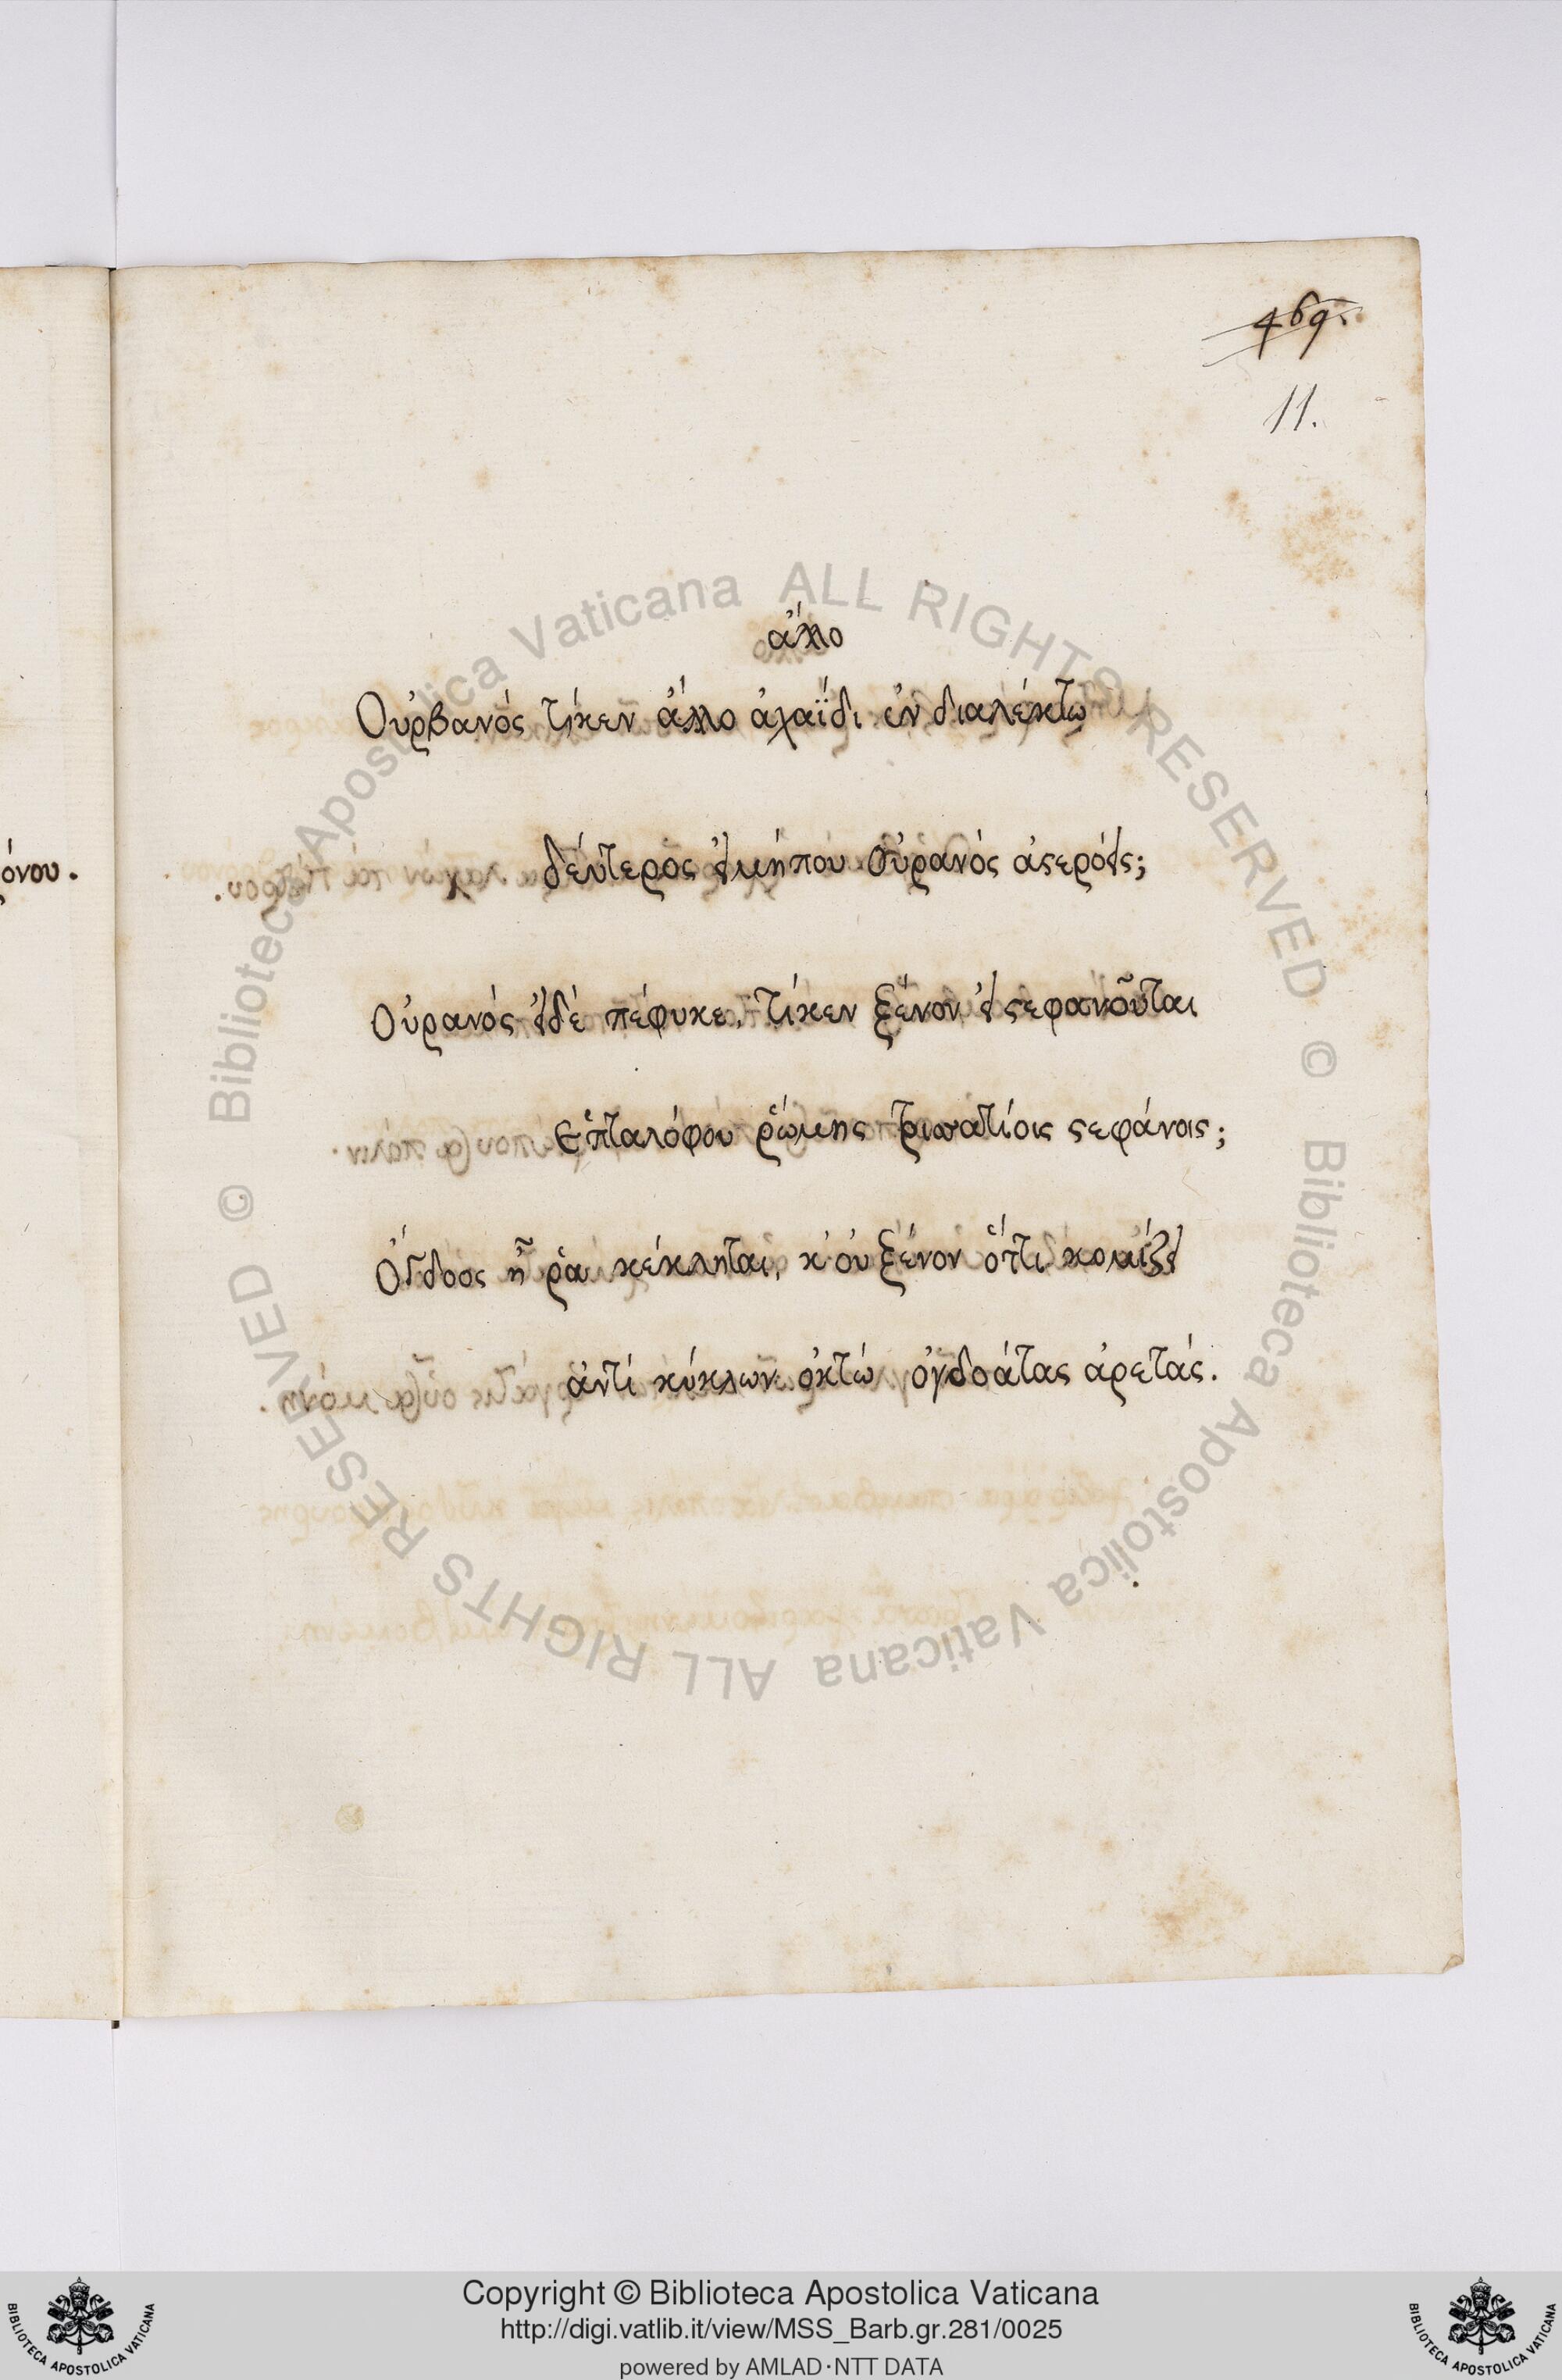 469.
11.
όνου.
ἄλλο
Οὐρβανός τίκεν ἄλλο ἀχαΐδι ἐν διαλέκτω
δεύτερος εἰμήπου Οὐρανός ἀςερόεις;
Οὐρανός εἰδέ πέφυκε, τίκεν ξένον εἰ ςεφανοῦται
Ἑπταλόφου ῥώμης τρισσατίοις ςεφάνοις;
Ὄγδοος ἦ ῥα κέκληται, κ' οὐ ξένον ὅττι κομίζει
ἀντί κύκλων ὀκτώ ὀγδοάτας ἀρετάς.
© Biblioteca Apostolica Vaticana ALL RIGHTS RESERVED © Biblioteca Apostolica Vaticana ALL RIGHTS RESERVED
Copyright © Biblioteca Apostolica Vaticana
http://digi.vatlib.it/view/MSS_Barb.gr.281/0025
powered by AMLAD·NTT DATA
BIBLIOTECA APOSTOLICA VATICANA
BIBLIOTECA APOSTOLICA VATICANA